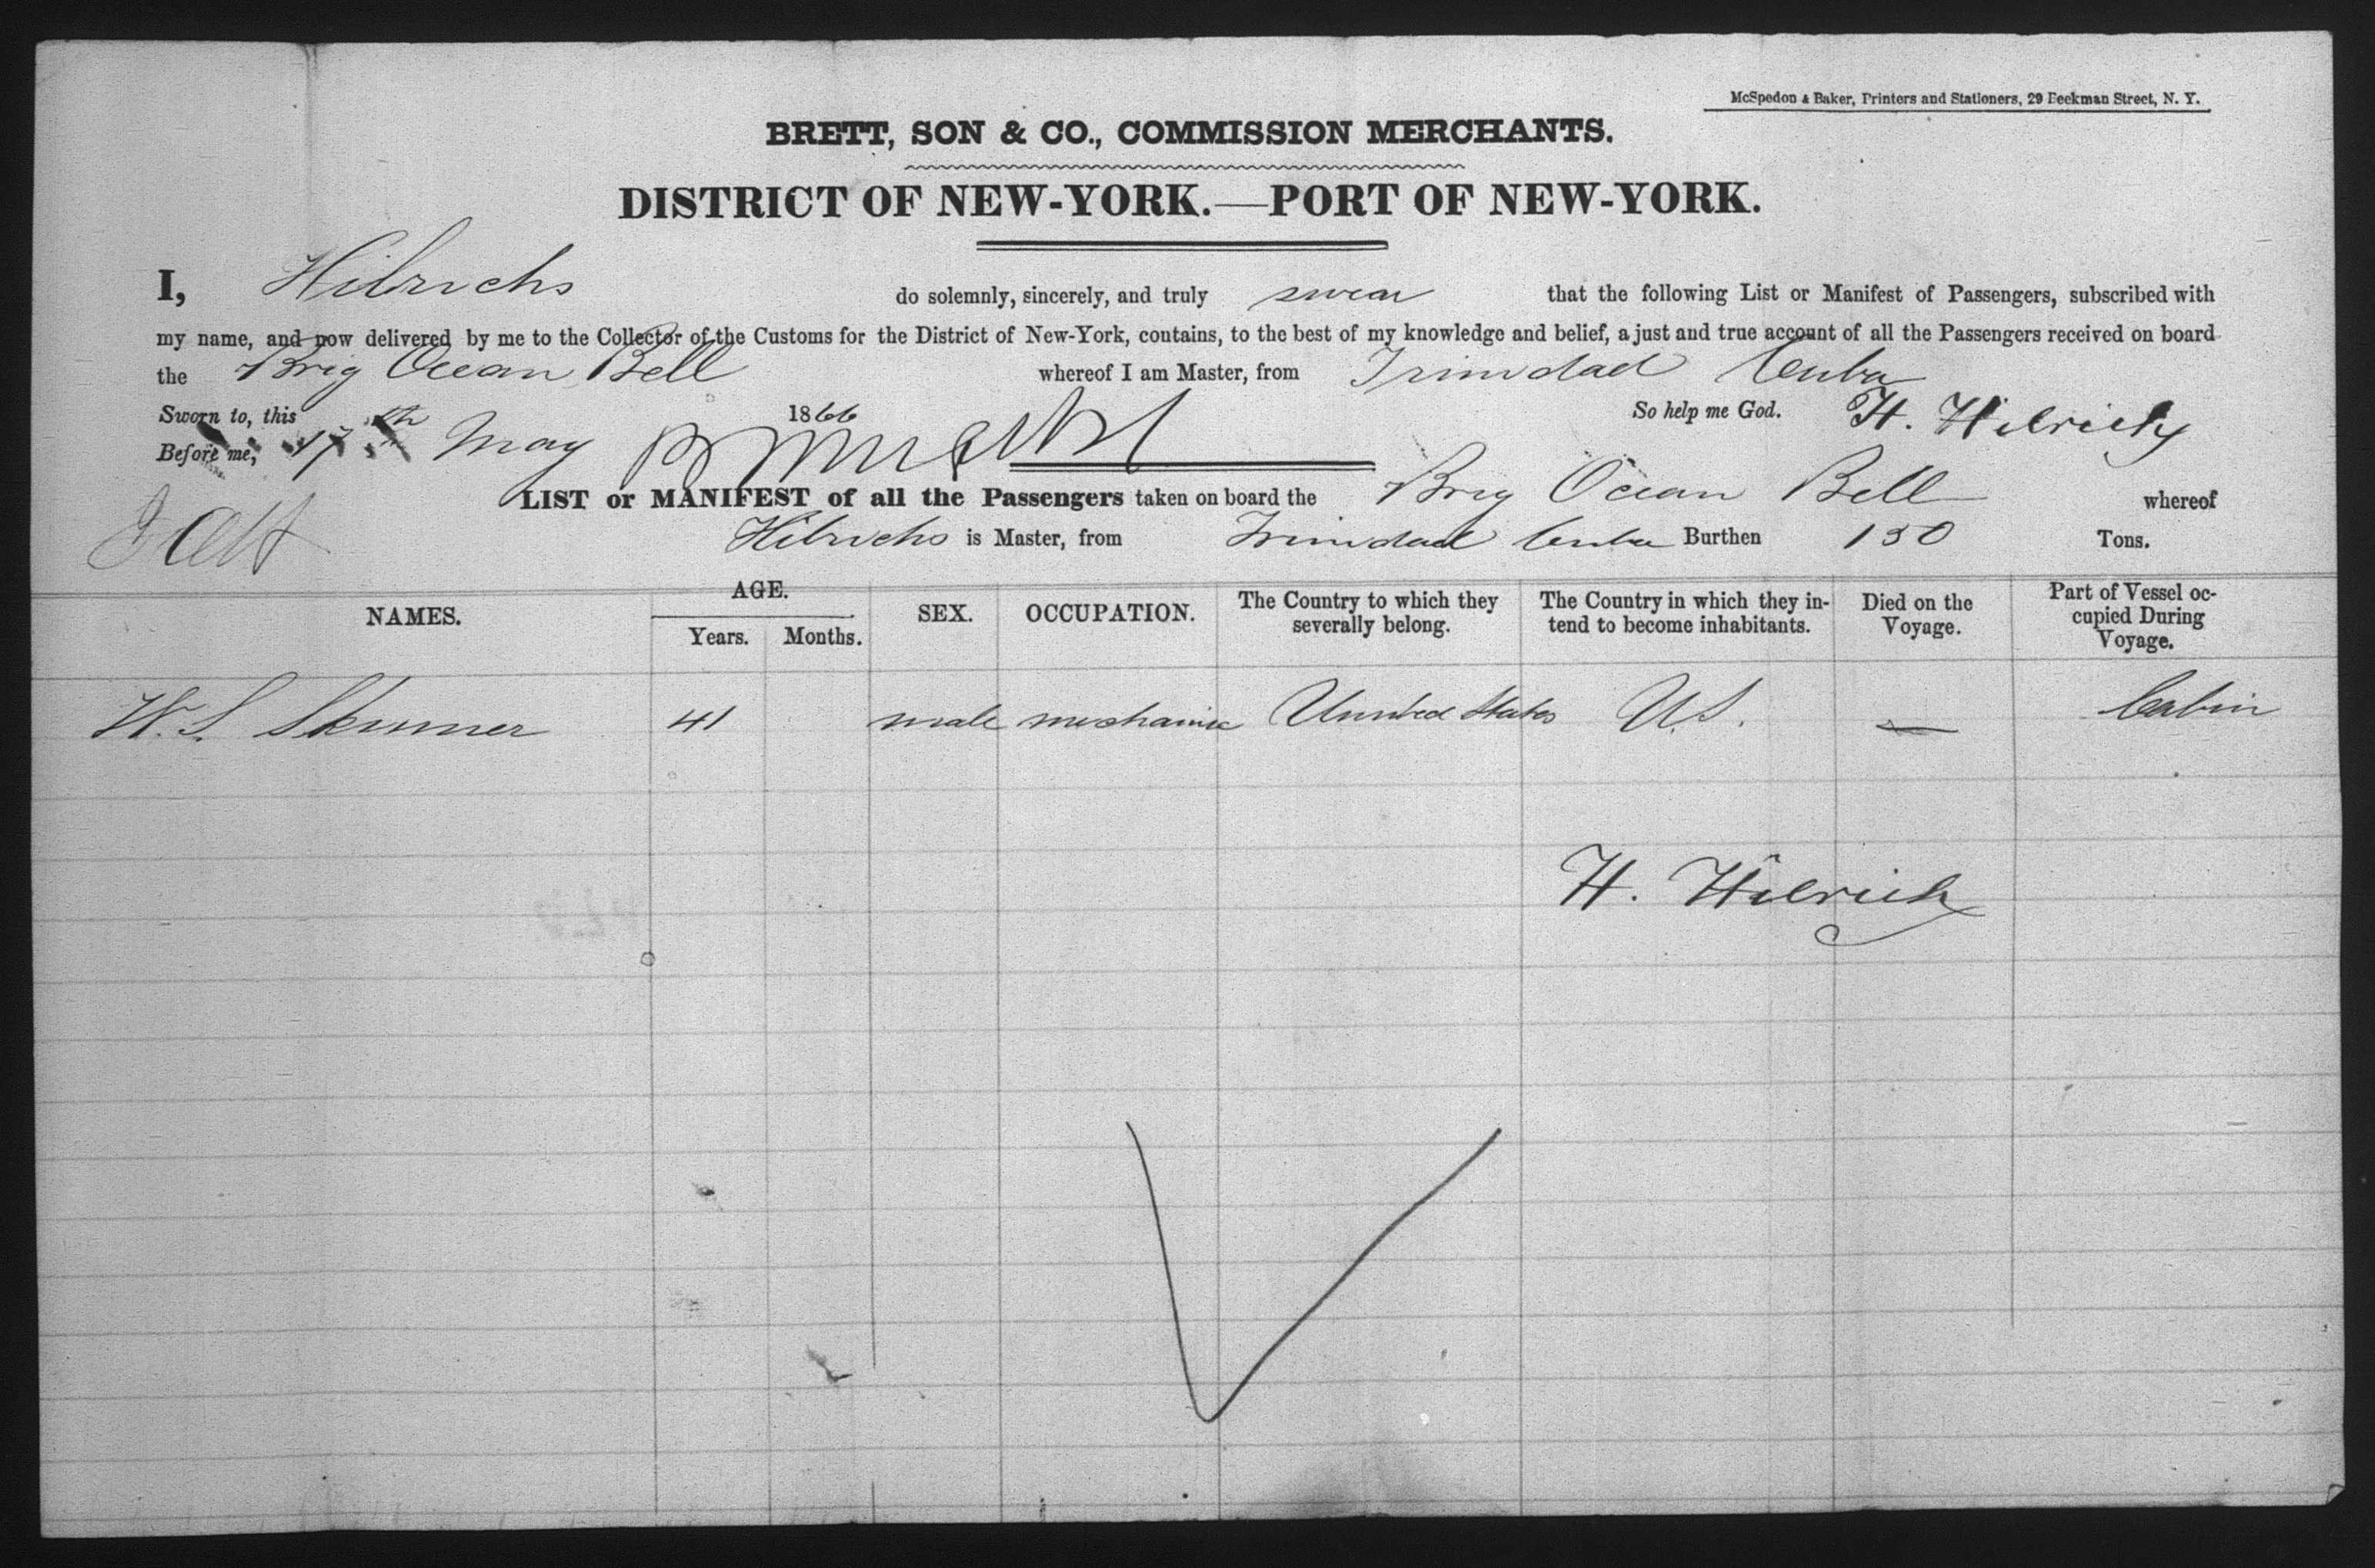 McSpedon & Baker, Printers and Stationers, 29 Beekman Street, N. Y.
BRETT, SON & CO., COMMISSION MERCHANTS.
DISTRICT OF NEW-YORK.—PORT OF NEW-YORK.
I, Hilrichs do solemnly, sincerely, and truly swear that the following List or Manifest of Passengers, subscribed with
my name, and now delivered by me to the Collector of the Customs for the District of New-York, contains, to the best of my knowledge and belief, a just and true account of all the Passengers received on board
the Brig Ocean Bell whereof I am Master, from Trinidad Cuba
Sworn to, this 17th May 1866 So help me God. H. Hilrichs
Before me,
LIST or MANIFEST of all the Passengers taken on board the Brig Ocean Bell whereof
Hilrichs is Master, from Trinidad Cuba Burthen 130 Tons.
NAMES. AGE. Years. Months. SEX. OCCUPATION. The Country to which they severally belong. The Country in which they intend to become inhabitants. Died on the Voyage. Part of Vessel occupied During Voyage.
W. S. Skinner 41 male mechanic United States U.S. — Cabin
H. Hilrichs